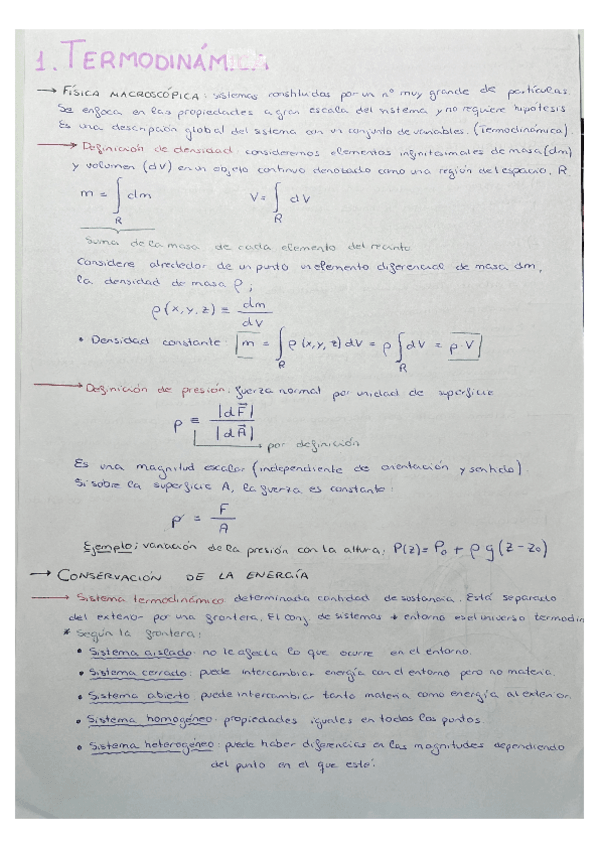 1. TERMODINÁMICA
→ FÍSICA MACROSCÓPICA: sistemas constituidas por un nº muy grande de partículas.
Se enfoca en las propiedades a gran escala del sistema y no requiere hipótesis
Es una descripción global del sistema con un conjunto de variables. (Termodinámica).
→ Definición de densidad consideremos elementos infinitesimales de masa (dm)
y volumen (dV) en un objeto continuo denotado como una región del espacio, R
m = ∫_R dm V = ∫_R dV
Suma de la masa de cada elemento del recinto
Considere alrededor de un punto un elemento diferencial de masa dm,
la densidad de masa ρ;
ρ(x,y,z) = dm/dV
• Densidad constante: m = ∫_R ρ(x,y,z) dV = ρ ∫_R dV = ρ·V
→ Definición de presión: fuerza normal por unidad de superficie
P ≡ |dF⃗|/|dA⃗|
por definición
Es una magnitud escalar (independiente de orientación y sentido).
Si sobre la superficie A, la fuerza es constante:
P = F/A
Ejemplo; variación de la presión con la altura; P(z) = P₀ + ρg(z-z₀)
→ CONSERVACIÓN DE LA ENERGÍA
→ Sistema termodinámico determinada cantidad de sustancia. Está separado
del exterior por una frontera. El conj. de sistemas + entorno es el universo termodin
* Según la frontera:
• Sistema aislado: no le afecta lo que ocurre en el entorno.
• Sistema cerrado: puede intercambiar energía con el entorno pero no materia.
• Sistema abierto: puede intercambiar tanto materia como energía al exterior.
• Sistema homogéneo: propiedades iguales en todos los puntos.
• Sistema heterogéneo: puede haber diferencias en las magnitudes dependiendo
del punto en el que esté.